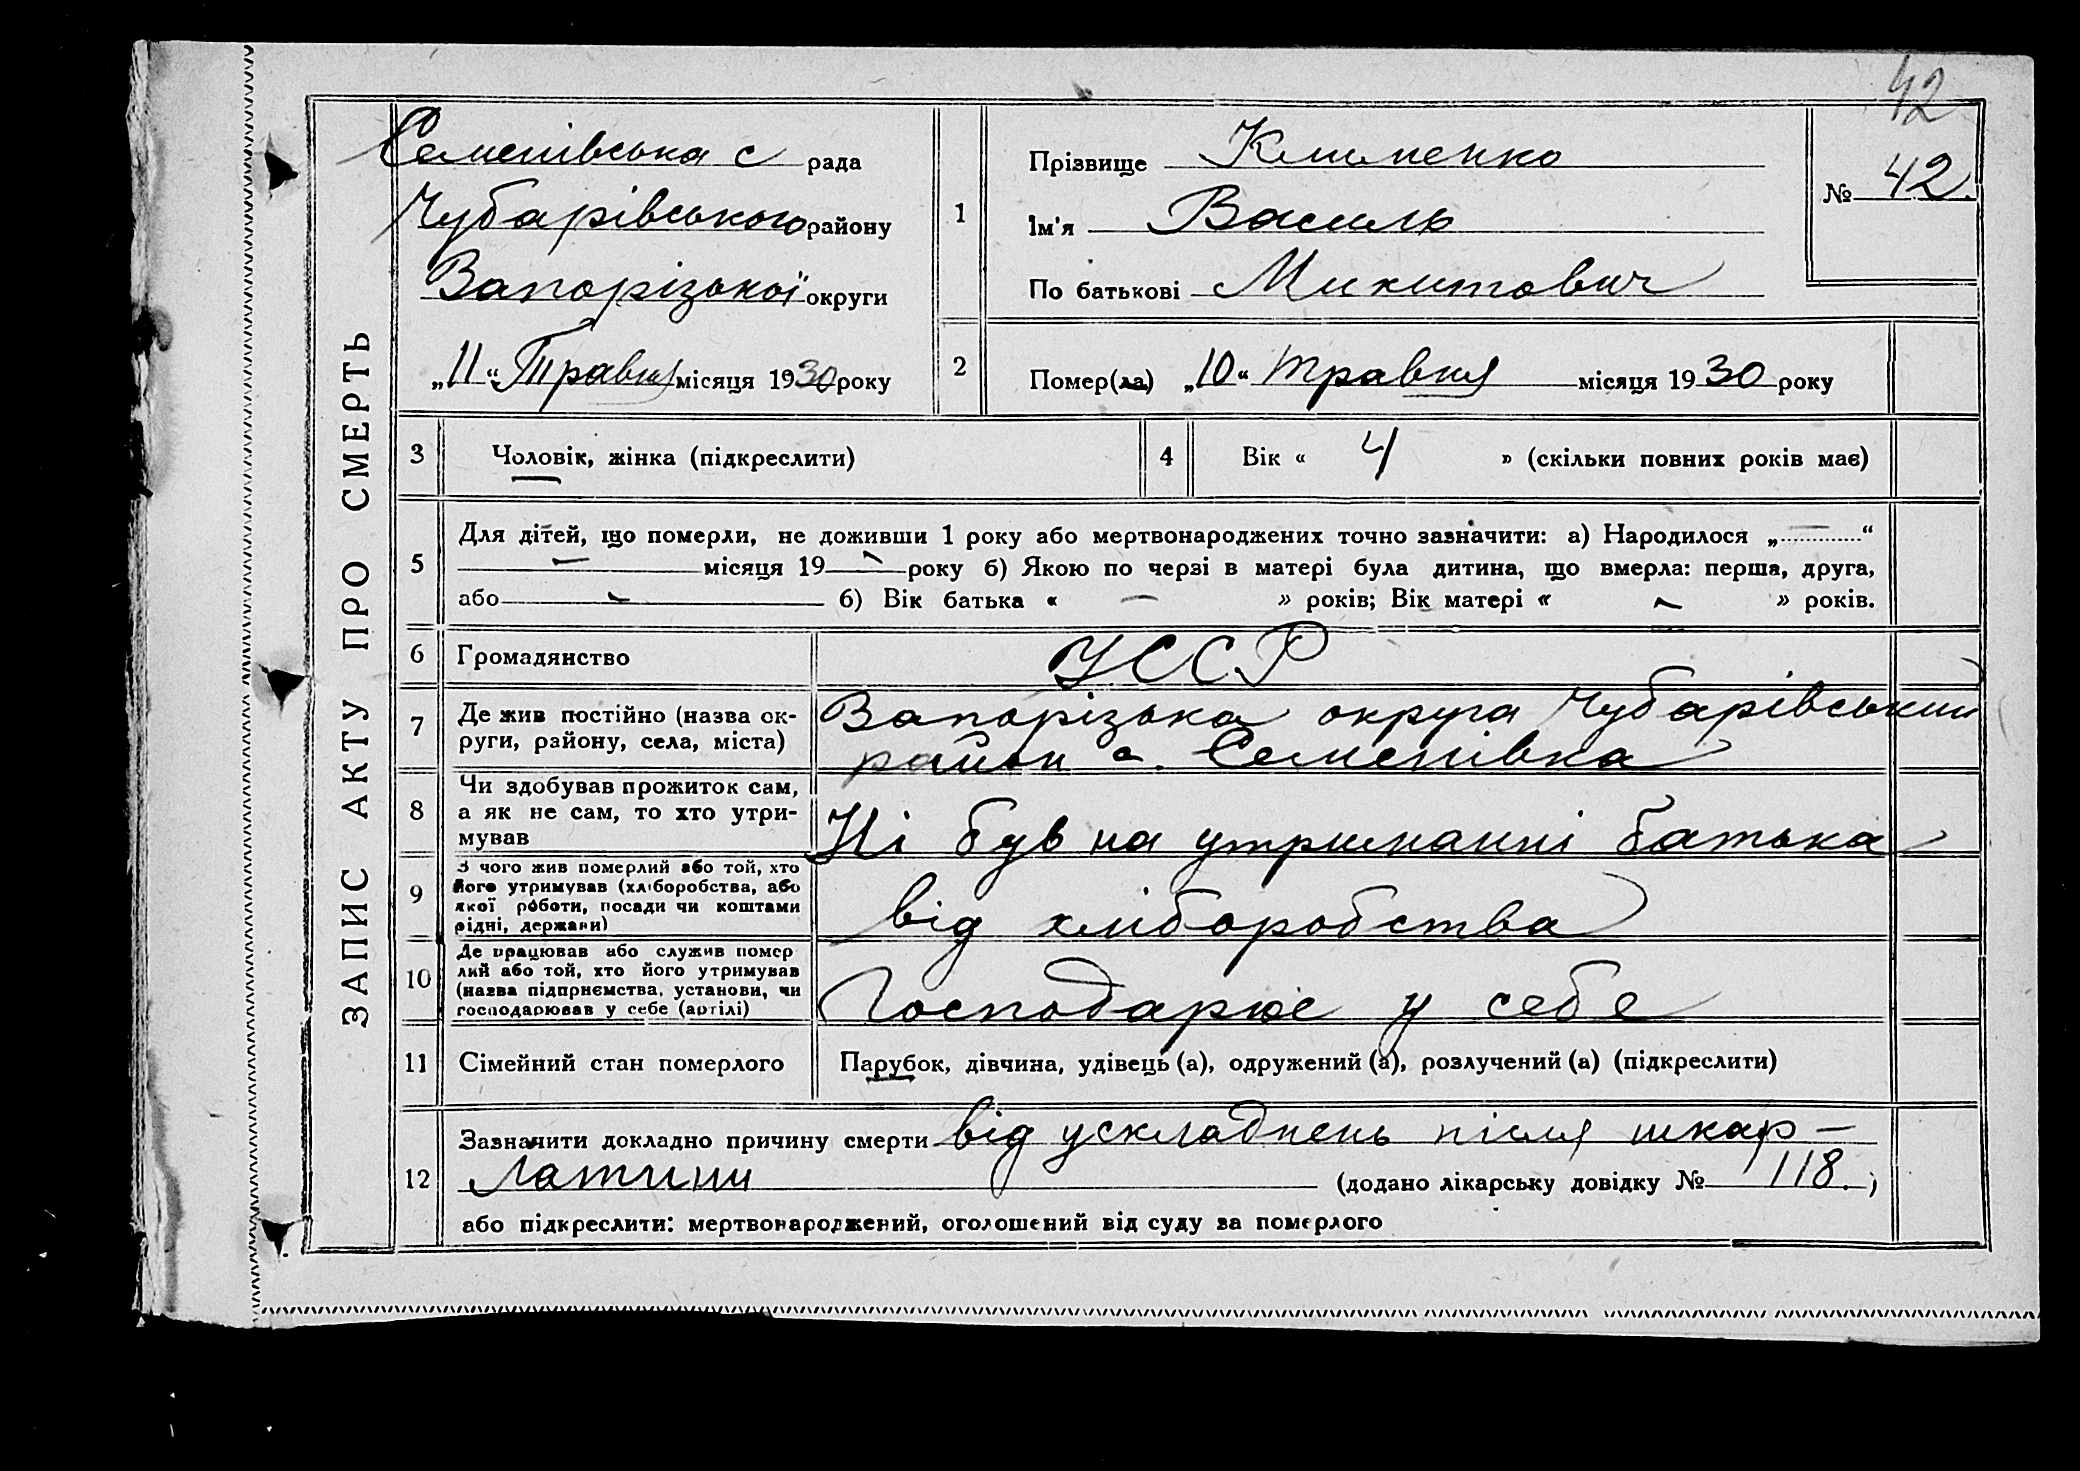 42
ЗАПИС АКТУ ПРО СМЕРТЬ
Семенівська с рада
Чубарівського району
Запорізької округи
„11“ Травня місяця 1930 року
1
Прізвище Клименко
Ім'я Василь
По батькові Микитович
№ 42.
2
Помер(ла) „10“ травня місяця 1930 року
3 Чоловік, жінка (підкреслити)
4 Вік « 4 » (скільки повних років має)
5
Для дітей, що померли, не доживши 1 року або мертвонароджених точно зазначити: а) Народилося „ — “
— місяця 19 — року б) Якою по черзі в матері була дитина, що вмерла: перша, друга,
або — б) Вік батька « — » років; Вік матері « — » років.
6 Громадянство УССР
7
Де жив постійно (назва ок-
руги, району, села, міста)
Запорізька округа Чубарівський
район с. Семенівка
8
Чи здобував прожиток сам,
а як не сам, то хто утри-
мував
Ні був на утриманні батька
9
З чого жив померлий або той, хто
його утримував (хліборобства, або
якої роботи, посади чи коштами
рідні, держави)
від хліборобства
10
Де працював або служив помер
лий або той, хто його утримував
(назва підприємства, установи, чи
господарював у себе (артілі)
Господарює у себе
11 Сімейний стан померлого Парубок, дівчина, удівець (а), одружений (а), розлучений (а) (підкреслити)
12
Зазначити докладно причину смерти від ускладнень після шкар-
латини (додано лікарську довідку № 118.)
або підкреслити: мертвонароджений, оголошений від суду за померлого